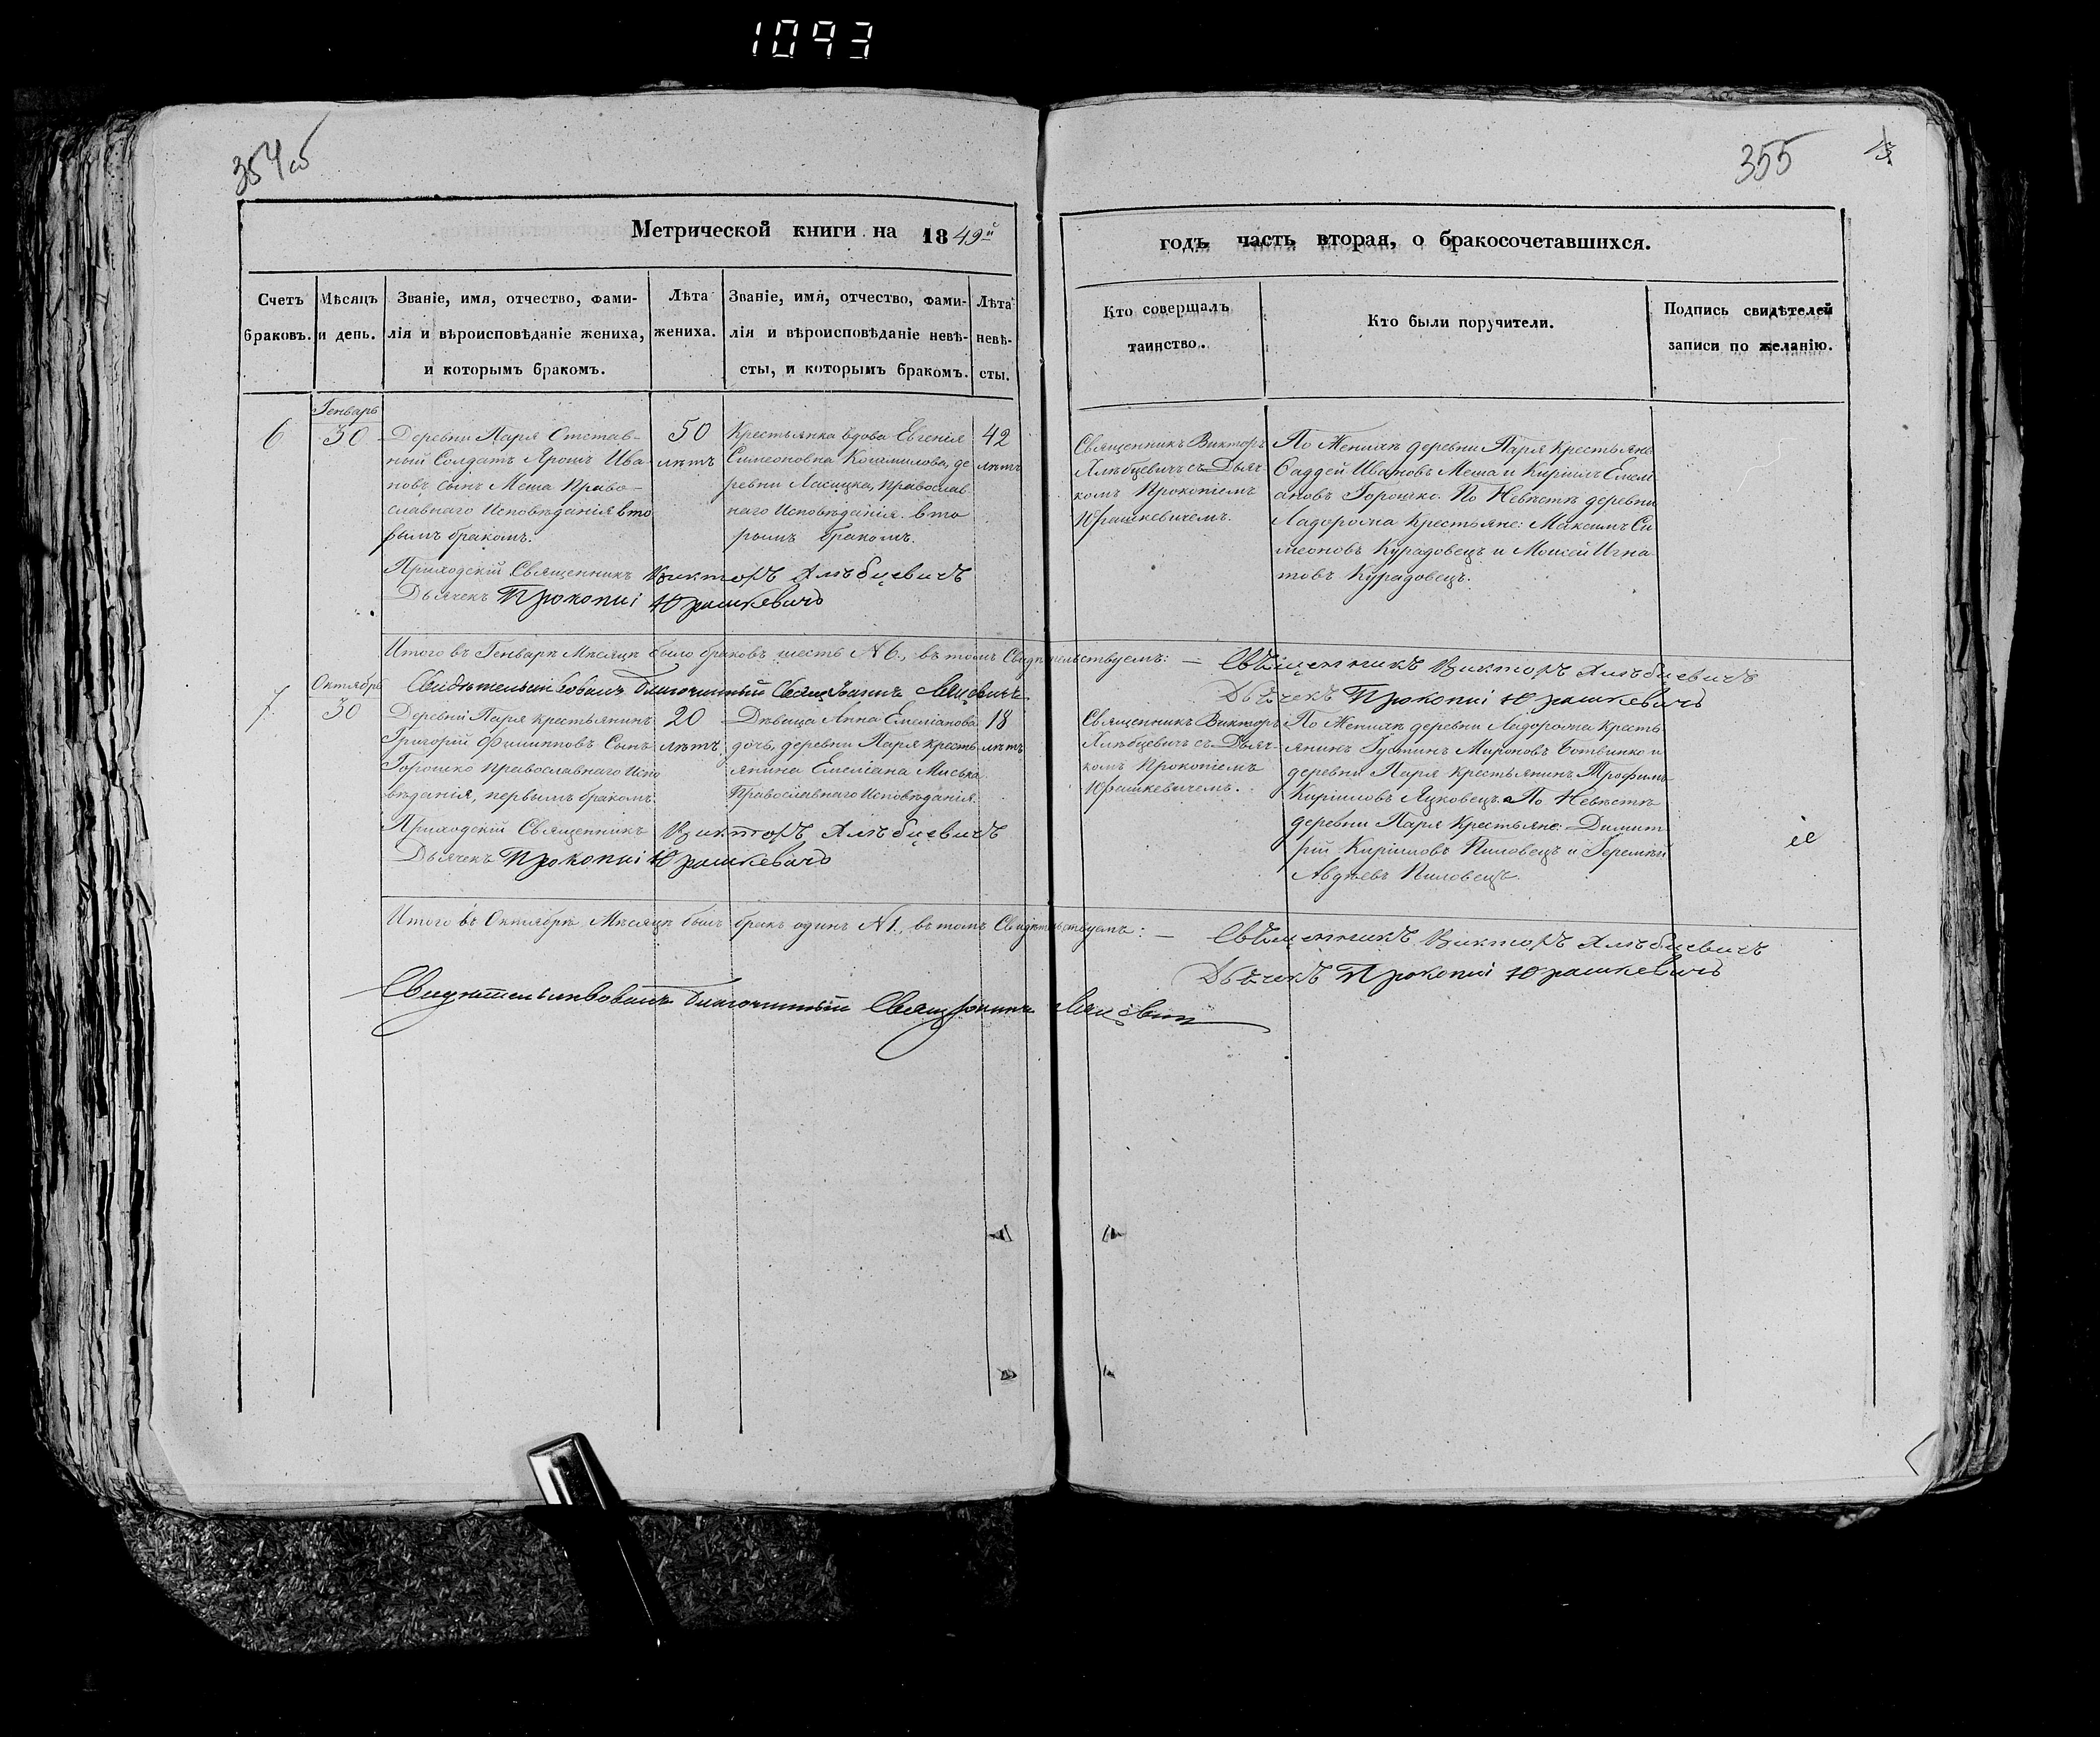 1093
354об
355
Метрической книги на 1849й
годъ часть вторая, о бракосочетавшихся.
Счетъ браковъ.
Мѣсяцъ и день.
Званіе, имя, отчество, фами-
лія и вѣроисповѣданіе жениха,
и которымъ бракомъ.
Лѣта
жениха.
Званіе, имя, отчество, фами-
лія и вѣроисповѣданіе невѣ-
сты, и которымъ бракомъ.
Лѣта
невѣ-
сты.
Кто совершалъ
таинство.
Кто были поручители.
Подпись свидѣтелей
записи по желанію.
6
Генварь
30
Деревни Паря Отстав-
ный Солдатъ Ярошъ Ива-
новъ сынъ Меша Право-
славнаго Исповѣданія вто
рымъ бракомъ.
50
лѣтъ
Крестьянка вдова Евгенія
Симеоновна, де
ревни Ласицка, Православ
наго Исповѣданія. вто
рымъ бракомъ.
42
лѣтъ
Священникъ Викторъ
Хлѣбцевичъ съ Дьяч-
комъ Прокопіемъ
Юрашкевичемъ.
По Женихѣ деревни Паря Крестьяне
Фаддей Ивановъ Меша и Кирилъ Емелі
ановъ Горошко. По Невѣстѣ деревни
Ладорожа Крестьяне: Максимъ Си
меоновъ Курадовецъ и Моисей Игна
товъ Курадовецъ.
Приходскій Священникъ Викторъ Хлѣбцевичъ
Дьячекъ Прокопій Юрашкевичъ
Итого въ Генварѣ Мѣсяцѣ было браковъ шесть N 6., въ томъ Свидѣтельствуемъ: — Священникъ Викторъ Хлѣбцевичъ
Дьячекъ Прокопій Юрашкевичъ
Свидѣтельствовалъ Благочинный Свящ Іоаннъ
7.
Октябрь
30
Деревни Паря крестьянинъ
Григорій Филипповъ Сынъ
Горошко Православнаго Испо
вѣданія, первымъ бракомъ.
20
лѣтъ
Дѣвица Анна Емеліанова
дочь, деревни Паря кресть
янина Емеліана Миська.
Православнаго Исповѣданія.
18
лѣтъ
Священникъ Викторъ
Хлѣбцевичъ съ Дьяч-
комъ Прокопіемъ
Юрашкевичемъ.
По Женихѣ деревни Ладорожа Кресть
янинъ Густинъ Мироновъ Ботвинко и
деревни Паря Крестьянинъ Трофимъ
Кириловъ Яцковецъ. По Невѣстѣ
деревни Паря Крестьяне: Димит
рій Кириловъ Пиловецъ и Геремѣй
Авдѣевъ Пиловецъ.
Приходскій Священникъ Викторъ Хлѣбцевичъ
Дьячекъ Прокопій Юрашкевичъ
Итого въ Октябрѣ Мѣсяцѣ былъ бракъ одинъ N 1., въ томъ Свидѣтельствуемъ: — Священникъ Викторъ Хлѣбцевичъ
Дьячекъ Прокопій Юрашкевичъ
Свидѣтельствовалъ Благочинный Свящ Іоаннъ